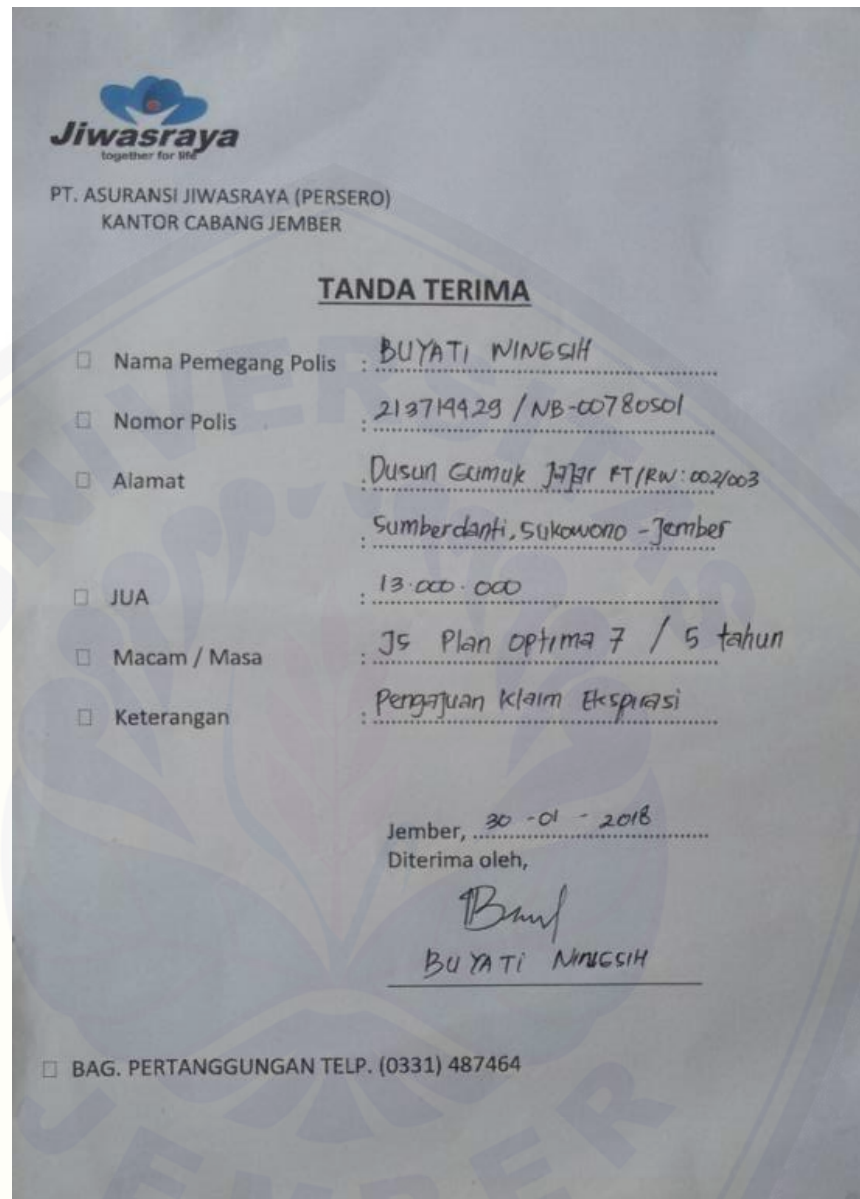 Jiwasraya
together for life
PT. ASURANSI JIWASRAYA (PERSERO)
KANTOR CABANG JEMBER
TANDA TERIMA
Nama Pemegang Polis : BUYATI NINGSIH
Nomor Polis : 213714429 / NB-00780501
Alamat : Dusun Gumuk Jajar RT/RW: 002/003
: Sumberdanti, Sukowono - Jember
JUA : 13.000.000
Macam / Masa : JS Plan Optima 7 / 5 tahun
Keterangan : Pengajuan Klaim Ekspirasi
Jember, 30 - 01 - 2018
Diterima oleh,
BUYATI NINGSIH
BAG. PERTANGGUNGAN TELP. (0331) 487464
UNIVERSITAS
JEMBER